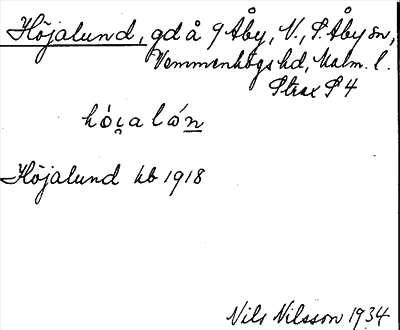 Höjalund, gd å 9 Åby, V., S. Åby sn,
Vemmenhögs hd, Malm. l.
Strax S 4
hói̯a lón
Höjalund kb 1918
Nils Nilsson 1934